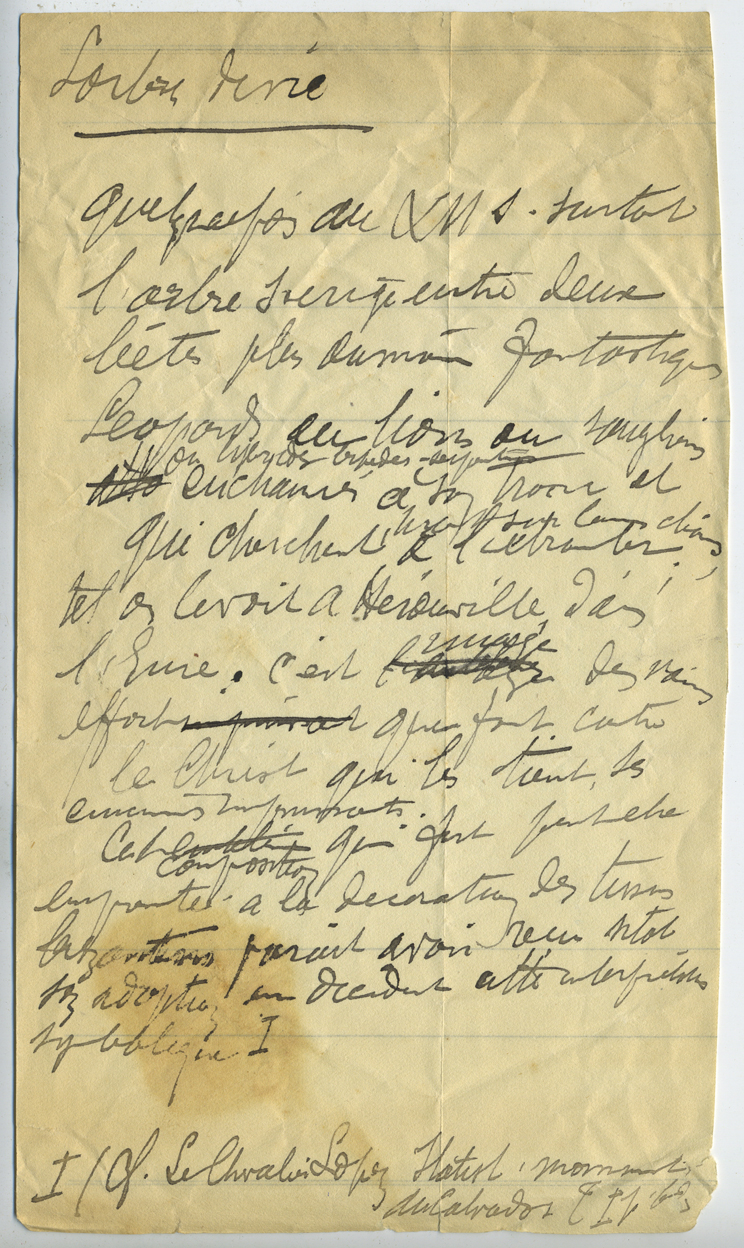 L'arbre de vie
quelquefois au XII s. surtout
l'arbre s'erige entre deux
bêtes plus ou moins fantastiques
Leopards ou lions ou sangliers
ou
enchainés à son tronc et
qui cherchent à l'ebranler ;
tel on le voit à Herouville dans
l'Eure. c'est l'image des vains
efforts que font contre
le Christ qui les tient, ses
ennemis impuissants.
Cette composition qui fut peut etre
empruntée à la decoration des tissus
bizantins parait avoir recu sitot
son adoption en occident cette interpretation
symbolique I
I / Cf. Le Chevalier Lopez Statist. monument.
du Calvados T I p.